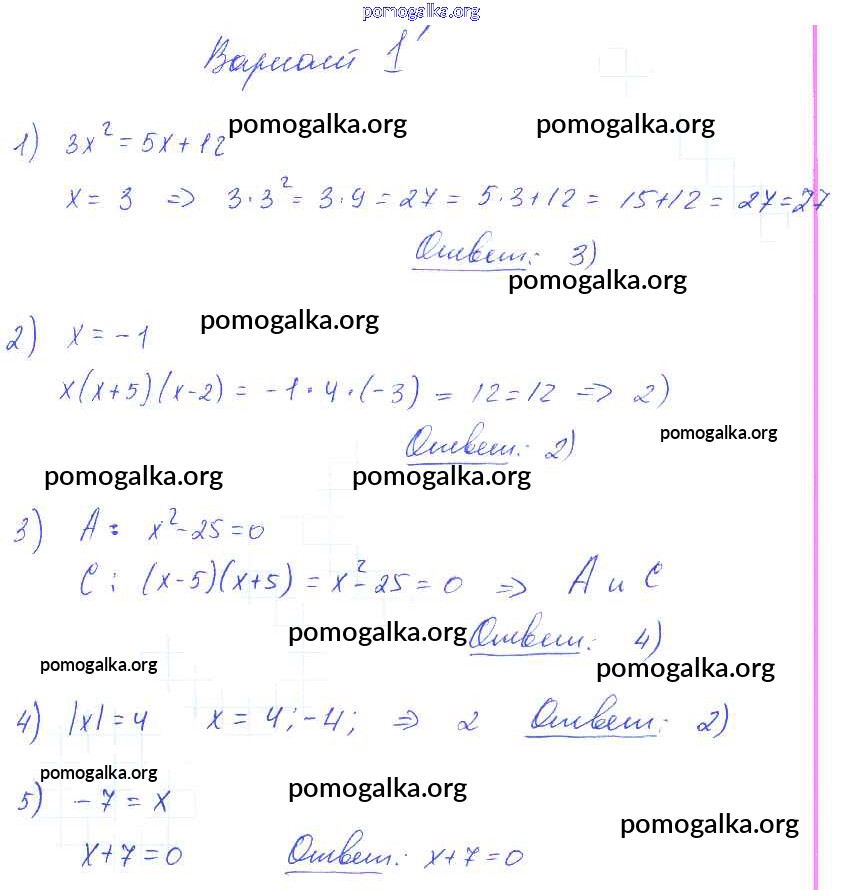 pomogalka.org
Вариант 1'
1) 3x² = 5x + 12 pomogalka.org pomogalka.org
x = 3 => 3·3² = 3·9 = 27 = 5·3+12 = 15+12 = 27 = 27
Ответ: 3)
pomogalka.org
pomogalka.org
2) x = -1
x(x+5)(x-2) = -1·4·(-3) = 12 = 12 => 2)
Ответ: 2) pomogalka.org
pomogalka.org pomogalka.org
3) A: x² - 25 = 0
C: (x-5)(x+5) = x² - 25 = 0 => A и C
pomogalka.org Ответ: 4)
pomogalka.org pomogalka.org
4) |x| = 4 x = 4; -4; => 2 Ответ: 2)
pomogalka.org pomogalka.org
5) -7 = x
pomogalka.org
x+7=0 Ответ: x+7=0